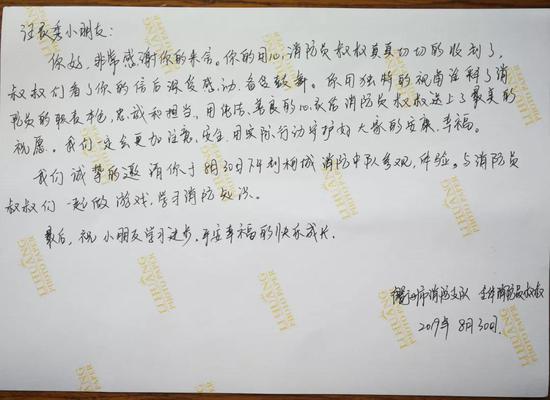 小朋友:
你好,非常感谢你的来信。你的用心,消防员叔叔真真切切的收到了,
叔叔们看了你的信后深受感动,备受鼓舞。你用独特的视角诠释了消
防员的职责本色,忠诚和担当,用纯洁、善良的心灵给消防员叔叔送上了最美的
祝愿。我们一定会更加注意安全,用实际行动守护好大家的安康、幸福。
我们诚挚的邀请你于8月30日下午到柯城消防中队参观,体验。与消防员
叔叔们一起做游戏,学习消防知识。
最后,祝小朋友学习进步,平安幸福的快乐成长。
市消防支队 全体消防员叔叔
2019年8月30日.
HUANG
PHOTO PAPER